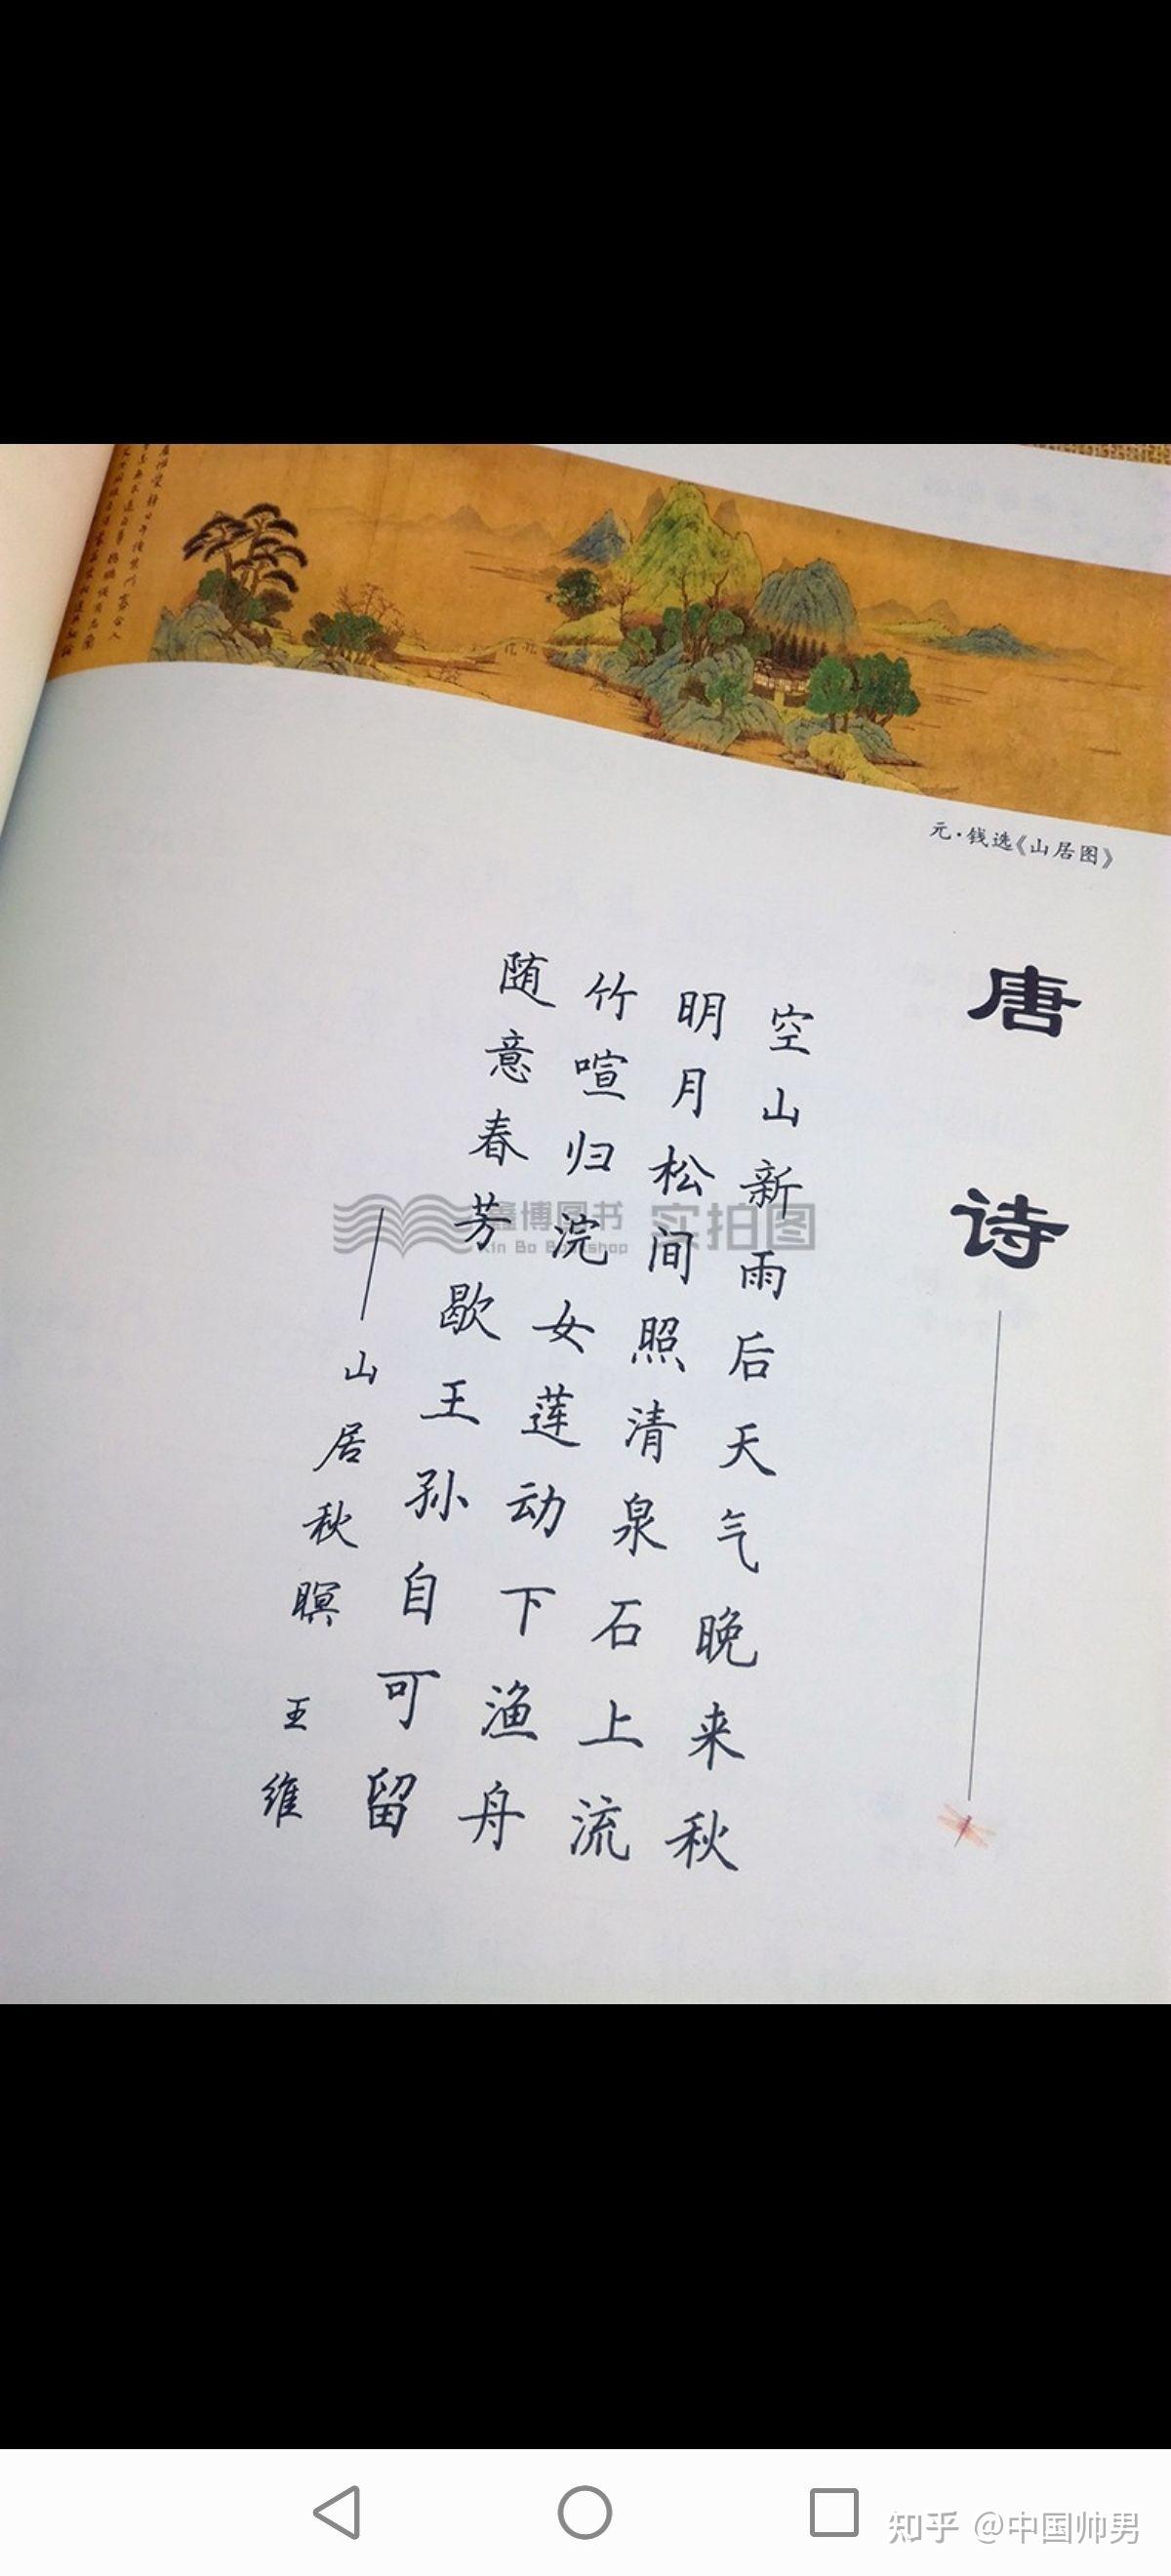 元·钱选《山居图》
唐诗
空山新雨后天气晚来秋
明月松间照清泉石上流
竹喧归浣女莲动下渔舟
随意春芳歇王孙自可留
——山居秋暝 王维
鑫博图书 实拍图
Xin Bo Bookshop
知乎 @中国帅男